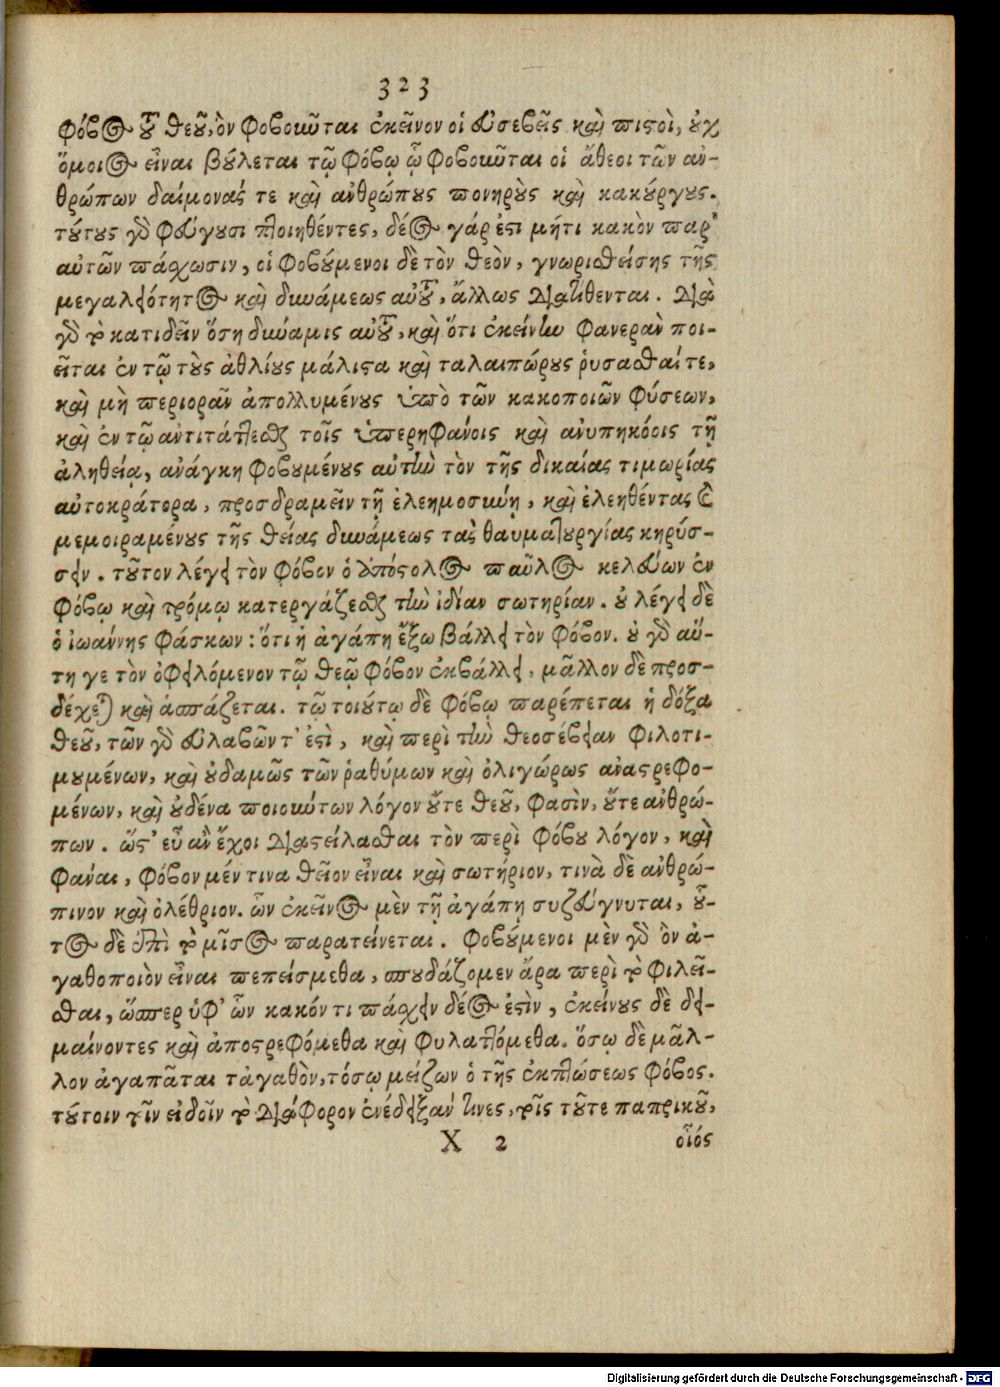 323
φόβος τοῦ θεοῦ, ὃν φοβοῦνται ἐκεῖνον οἱ εὐσεβεῖς καὶ πιστοὶ, οὐχ
ὅμοιος εἶναι βούλεται τῷ φόβῳ ᾧ φοβοῦνται οἱ ἄθεοι τῶν αν-
θρώπων δαίμονάς τε καὶ ανθρώπους πονηροὺς καὶ κακούργους.
τούτους γὸ φεύγουσι πτοιηθέντες, δέος γάρ ἐστι μήτι κακὸν παρ'
αυτῶν πάσχωσιν, οἱ φοβούμενοι δὲ τὸν θεὸν, γνωρισθείσης τῆς
μεγαλειότητος καὶ δυνάμεως αὐτοῦ, ἄλλως διατίθενται. διὰ
γὸ τὸ κατιδεῖν ὅση δύναμις αὐτοῦ, καὶ ὅτι ἐκείνην φανερὰν ποι-
εῖται ἐν τῷ τοὺς ἀθλίους μάλιστα καὶ ταλαιπώρους ῥυσασθαί τε,
καὶ μὴ περιορᾶν ἀπολλυμένους ὑπὸ τῶν κακοποιῶν φύσεων,
καὶ ἐν τῷ αντιτάττεσθαι τοῖς ὑπερηφάνοις καὶ ανυπηκόοις τῇ
ἀληθείᾳ, ανάγκη φοβουμένους αὐτὴν τὸν τῆς δικαίας τιμωρίας
αὐτοκράτορα, προσδραμεῖν τῇ ἐλεημοσύνῃ, καὶ ἐλεηθέντας καὶ
μεμοιραμένους τῆς θείας δυνάμεως τὰς θαυματουργίας κηρύσ-
σειν. τοῦτον λέγει τὸν φόβον ὁ ἀπόστολος παῦλος κελεύων ἐν
φόβῳ καὶ τρόμῳ κατεργάζεσθαι τὴν ἰδίαν σωτηρίαν. οὐ λέγει δὲ
ὁ ἰωαννης φάσκων: ὅτι ἡ ἀγάπη ἔξω βάλλει τὸν φόβον. οὐ γὸ αὕ-
τη γε τὸν ὀφειλόμενον τῷ θεῷ φόβον ἐκβάλλει, μᾶλλον δὲ προσ-
δέχεται καὶ ἀσπάζεται. τῷ τοιούτῳ δὲ φόβῳ παρέπεται ἡ δόξα
θεοῦ, τῶν γὸ εὐλαβῶν τ' ἐστὶ, καὶ περὶ τὴν θεοσέβειαν φιλοτι-
μουμένων, καὶ οὐδαμῶς τῶν ῥαθύμων καὶ ὀλιγώρως αναστρεφο-
μένων, καὶ οὐδένα ποιούντων λόγον οὔτε θεοῦ, φασὶν, οὔτε ανθρώ-
πων. ὥστ' εὖ ἂν ἔχοι διαστείλασθαι τὸν περὶ φόβου λόγον, καὶ
φάναι, φόβον μέν τινα θεῖον εἶναι καὶ σωτήριον, τινὰ δὲ ανθρώ-
πινον καὶ ὀλέθριον. ὧν ἐκεῖνος μὲν τῇ ἀγάπῃ συζεύγνυται, οὗ-
τος δὲ ἐπὶ τὸ μῖσος παρατείνεται. φοβούμενοι μὲν γὸ ὃν ἀ-
γαθοποιὸν εἶναι πεπείσμεθα, σπουδάζομεν ἄρα περὶ τὸ φιλεῖ-
σθαι, ὥσπερ ὑφ' ὧν κακόν τι πάσχειν δέος ἐστὶν, ἐκείνους δὲ δει-
μαίνοντες καὶ ἀποστρεφόμεθα καὶ φυλαττόμεθα. ὅσῳ δὲ μᾶλ-
λον ἀγαπᾶται τἀγαθὸν, τόσῳ μείζων ὁ τῆς ἐκπτώσεως φόβος.
τούτοιν τοῖν εἰδοῖν τὸ διάφορον ἐνέδειξάν τινες, τοῖς τοῦτε πατρικοῦ,
X 2 οἷός
Digitalisierung gefördert durch die Deutsche Forschungsgemeinschaft - DFG